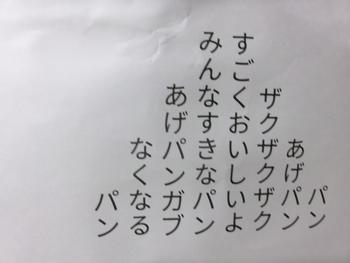 パン
あげパン
ザクザクザク
すごくおいしいよ
みんなすきなパン
あげパンガブ
なくなる
パン